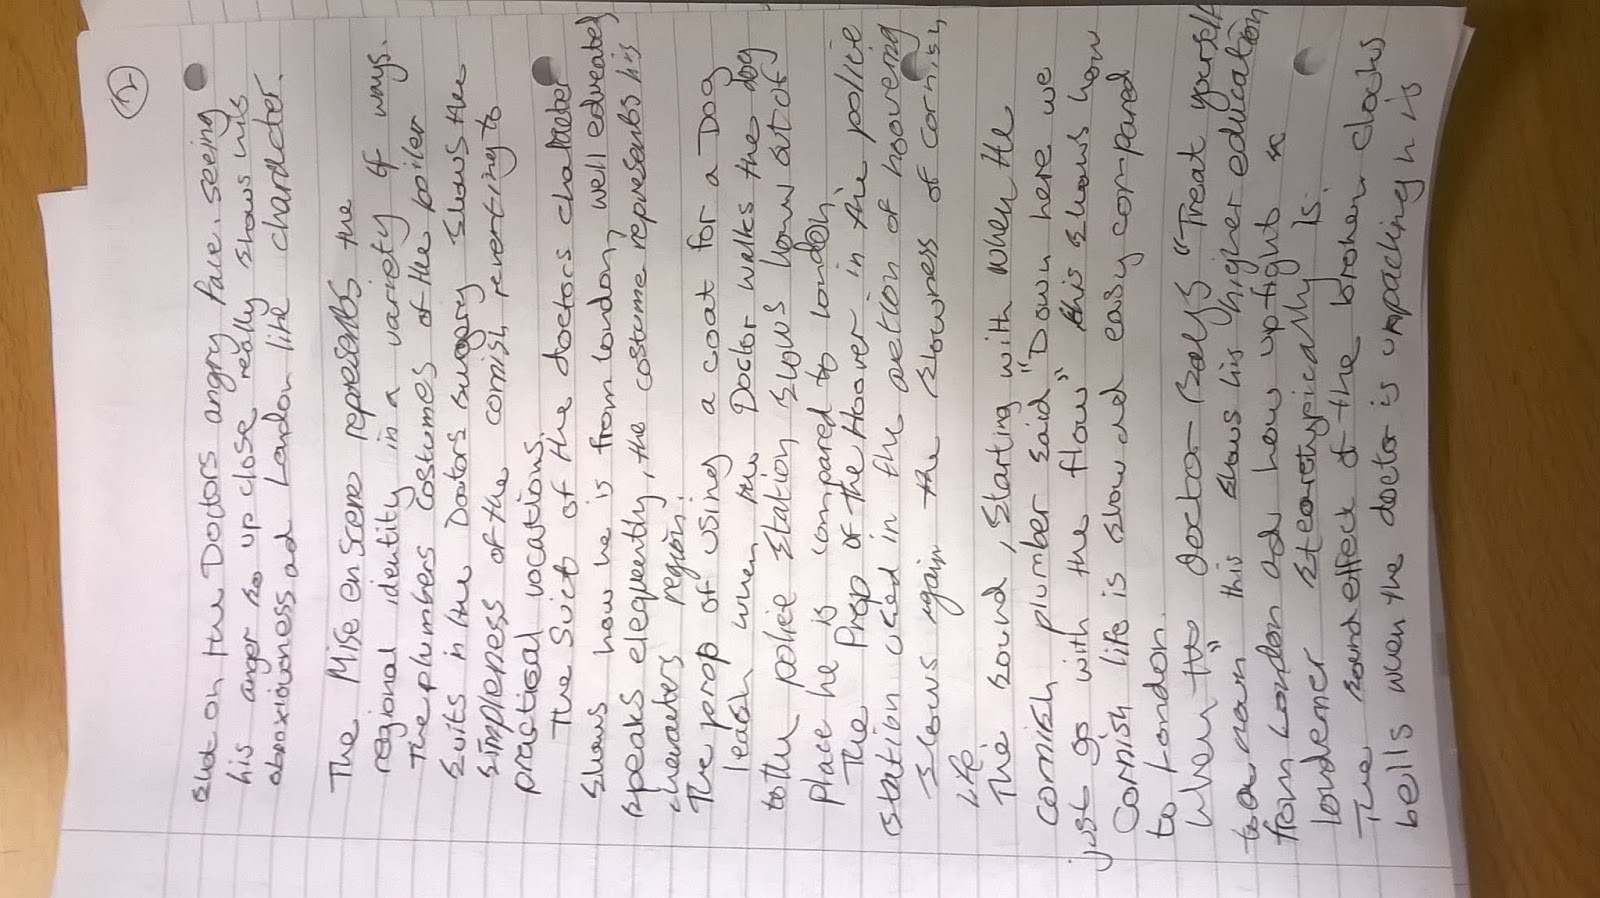 2
shot on the Doctors angry face. seeing
his anger so up close really shows his
obnoxiousness and London like character.
The Mise en Scene represents the
regional identity in a variety of ways.
The plumbers costumes of the boiler
suits in the Doctors surgery shows the
simpleness of the cornish, reverting to
practical vocations.
The Suit of the doctors character
shows how he is from london, well educated,
speaks elequently, the costume represents his
characters region.
The prop of using a coat for a Dog
leash when the Doctor walks the dog
to the police station, shows how out of
place he is compared to london.
The Prop of the Hoover in the police
station used in the action of hoovering
shows again the slowness of cornish,
life.
The sound, starting with when the
cornish plumber said "Down here we
just go with the flow" this shows how
Cornish life is slow and easy compared
to London.
When the doctor says "Treat yourself
to a noun" this shows his higher education
from London and how uptight a
londerner steoretypically is.
The sound effect of the broken clocks
bells when the doctor is unpacking h is